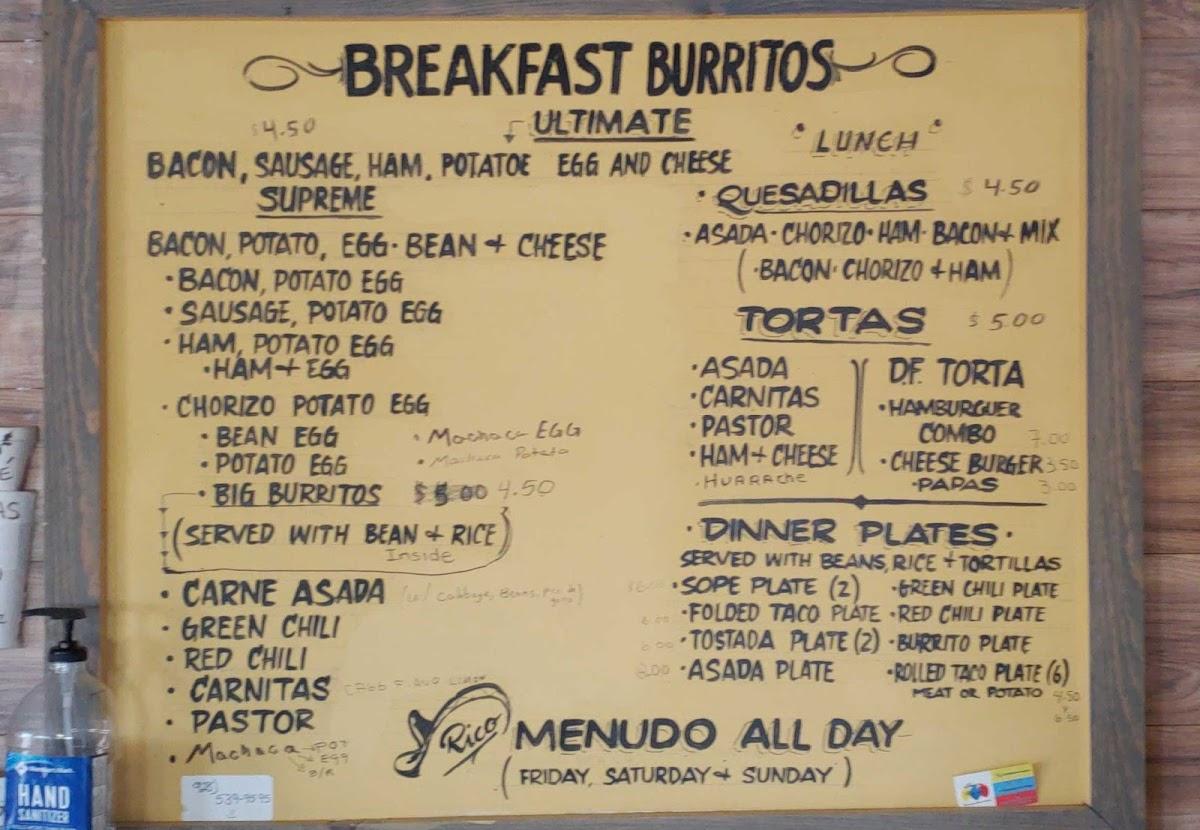 BREAKFAST BURRITOS
$4.50
ULTIMATE
BACON, SAUSAGE, HAM, POTATOE EGG AND CHEESE
SUPREME
BACON, POTATO, EGG · BEAN + CHEESE
· BACON, POTATO EGG
· SAUSAGE, POTATO EGG
· HAM, POTATO EGG
· HAM + EGG
· CHORIZO POTATO EGG
· BEAN EGG
· Machaca EGG
· POTATO EGG
· Machaca Potato
· BIG BURRITOS 4.50
(SERVED WITH BEAN & RICE)
Inside
· CARNE ASADA
· GREEN CHILI
· RED CHILI
· CARNITAS
· PASTOR
· Machaca POT
EGG
B/R
LUNCH
· QUESADILLAS $4.50
· ASADA · CHORIZO · HAM · BACON + MIX
(· BACON · CHORIZO + HAM)
TORTAS $5.00
· ASADA
· CARNITAS
· PASTOR
· HAM + CHEESE
· HUARACHE
D.F. TORTA
· HAMBURGUER
COMBO 7.00
· CHEESE BURGER 3.50
· PAPAS 3.00
· DINNER PLATES ·
SERVED WITH BEANS, RICE + TORTILLAS
· SOPE PLATE (2) · GREEN CHILI PLATE
6.00 · FOLDED TACO PLATE · RED CHILI PLATE
6.00 · TOSTADA PLATE (2) · BURRITO PLATE
· ASADA PLATE · ROLLED TACO PLATE (6)
MEAT OR POTATO 4.50
6.50
Rico
MENUDO ALL DAY
(FRIDAY, SATURDAY + SUNDAY)
539-9595
HAND
SANITIZER